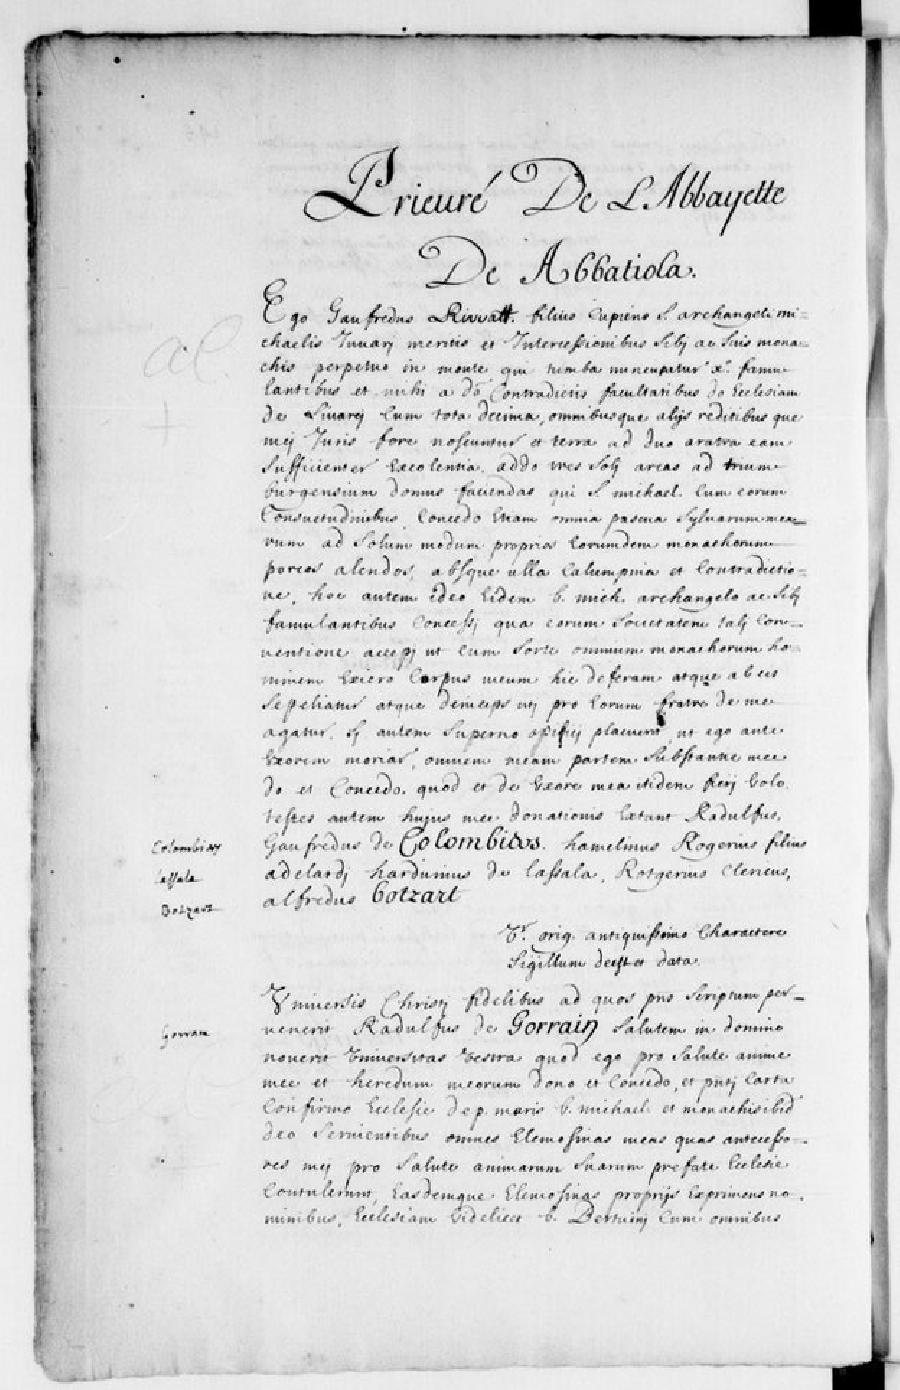 Prieuré De L'Abbayette
De Abbatiola.
Ego Gaufredus Rivvatt. filius Cupiens S. archangeli mi=
chaelis Juuarj meritis et Intercessionibus sibj ac suis mona=
chis perpetuo in monte qui tumba nuncupatur xº. famu
lantibus et mihi a dõ Contradictis facultatibus do Ecclesiam
de Liuarej Cum tota decima, omnibusque alijs reditibus que
mej Juris fore noscuntur et terra ad duo aratra eam
Sufficienter Excolentia. addo tres Solj areas ad trium
burgensium domus faciendas qui S. michael. Cum eorum
Consuetudinibus. Concedo Etiam omnia pascua Syluarum mea
rum ad Solum modum proprios Eorumdem monachorum
porcos alendos, absque ulla Calumpnia et Contradictio=
ne, hoc autem ideo Eidem b. mich. archangelo ac Sibj
famulantibus Concessj qua eorum Societatem talj Con
uentione accepj ut Cum Sorte omnium monachorum ho
minem Exiero Corpus meum hic deferam atque ab eis
Sepeliatur atque deinceps utj pro Eorum fratre de me
agatur. Sj autem Superno opifici placuerit, ut ego ante
Exorem moriar, omnem meam partem Substantie mee
do et Concedo. quod et de Exore mea itidem fierj Volo.
testes autem hujus mee donationis Extant Radulfus,
Gaufredus de Colombiers. hamelinus Rogerius filius
adelardj harduinus de lassala, Rotgerius Clericus,
alfredus botzart
Colombiers
lassala
Botzart
Vt. orig. antiquissimo Charactere
Sigillum deest et data.
Vniuersis Christj fidelibus ad quos pns Scriptum per_
uenerit Radulfus de Gorrain Salutem in domino
Gorram
nouerit Vniuersitas Vestra quod ego pro Salute anime
mee et heredum meorum dono et Concedo, et pntj Carta
Confirmo Ecclesie de p. maris b. michael et monachis ibid
deo Seruientibus omnes Elemosinas meas quas antecesso=
res mej pro Salute animarum Suarum prefate Ecclesie
Contulerunt, Easdemque Elemosinas proprijs Exprimens no.
minibus, Ecclesiam Videlicet b. Bertuinj Cum omnibus